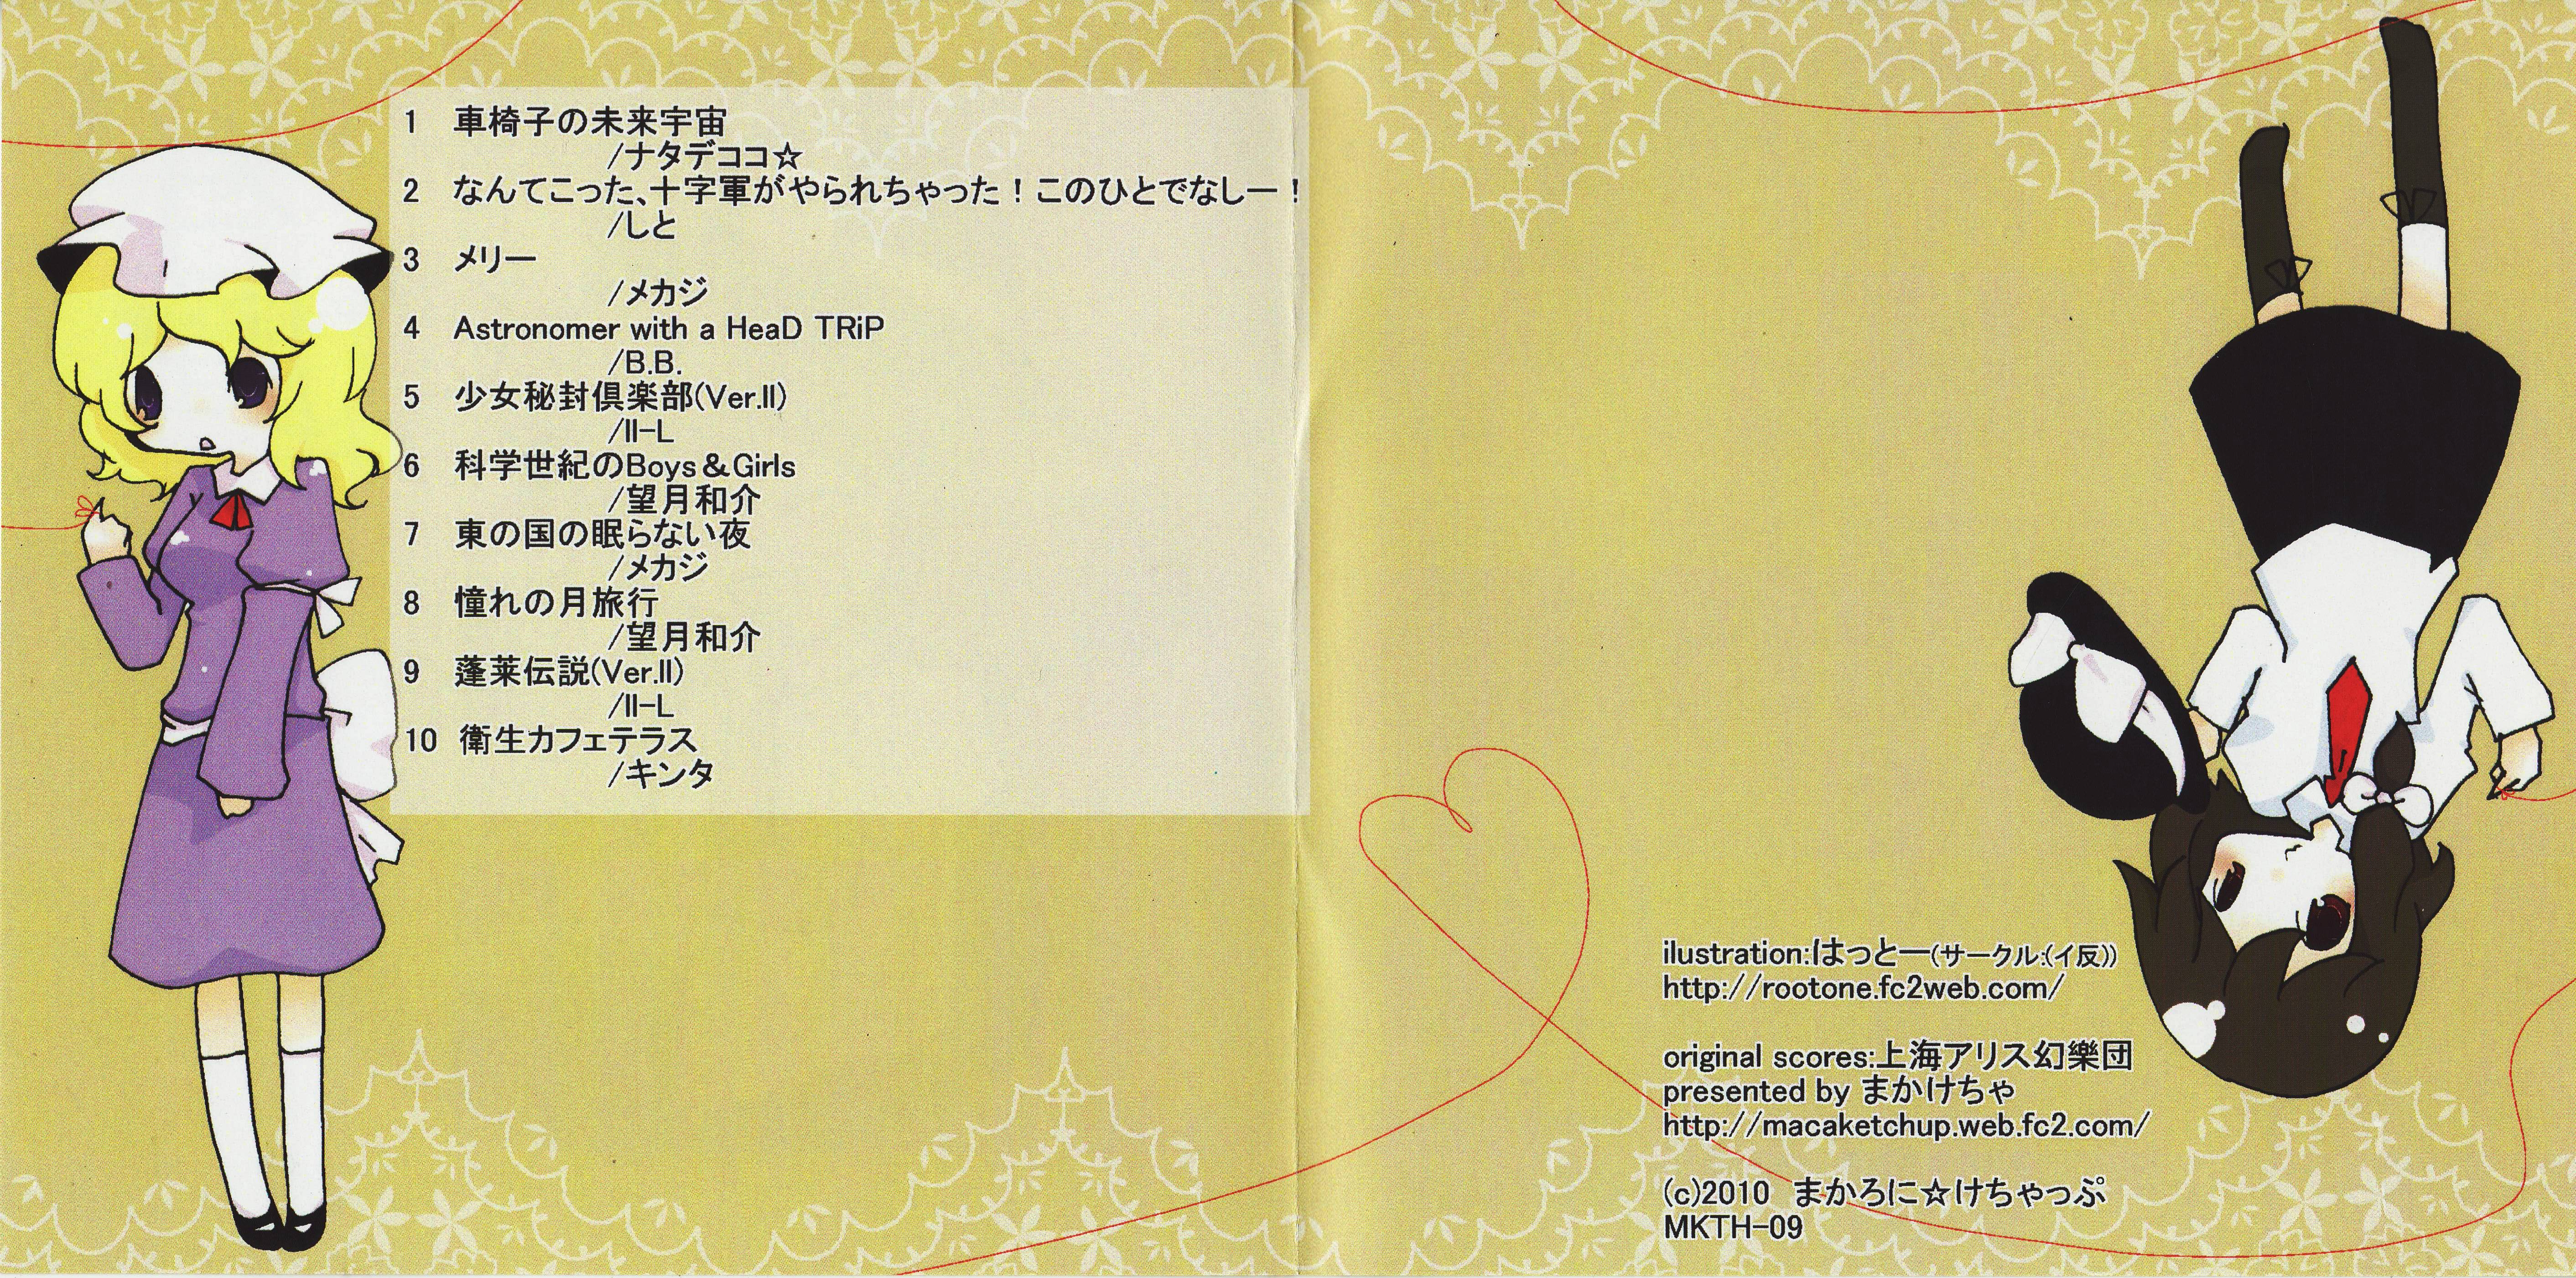 1 車椅子の未来宇宙
/ナタデココ☆
2 なんてこった、十字軍がやられちゃった！このひとでなしー！
/しと
3 メリー
/メカジ
4 Astronomer with a HeaD TRiP
/B.B.
5 少女秘封倶楽部(Ver.II)
/II-L
6 科学世紀のBoys＆Girls
/望月和介
7 東の国の眠らない夜
/メカジ
8 憧れの月旅行
/望月和介
9 蓬莱伝説(Ver.II)
/II-L
10 衛生カフェテラス
/キンタ
ilustration:はっとー(サークル:(イ反))
http://rootone.fc2web.com/
original scores:上海アリス幻樂団
presented by まかけちゃ
http://macaketchup.web.fc2.com/
(c)2010 まかろに☆けちゃっぷ
MKTH-09